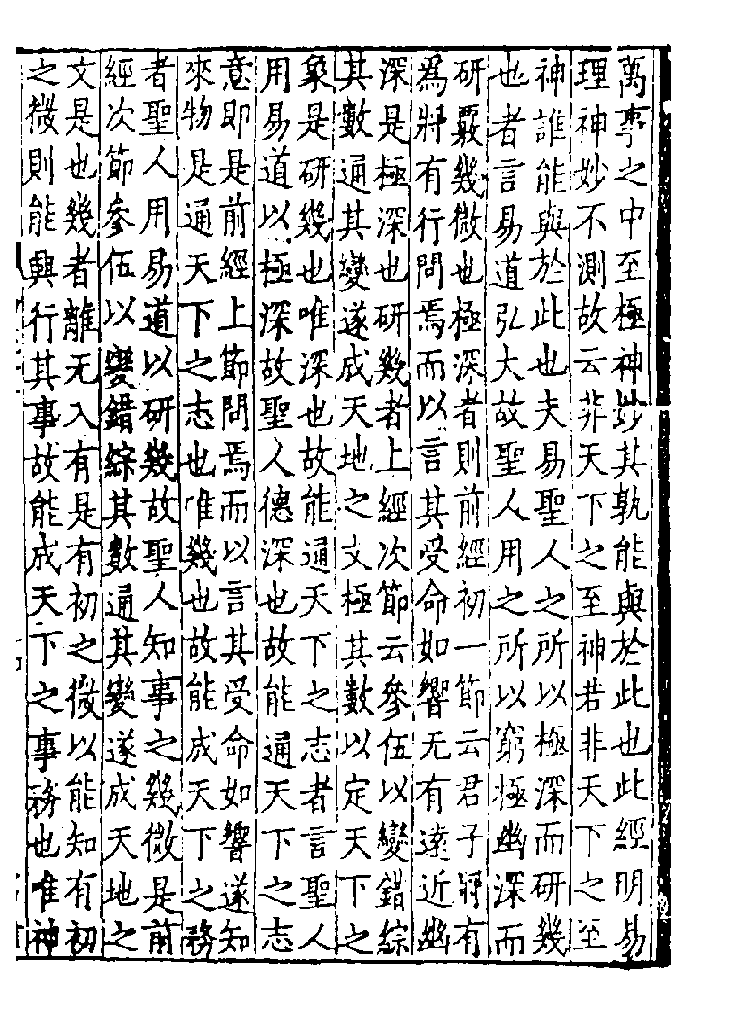 萬事之中至極神妙其孰能與於此也此經明易
理神妙不測故云非天下之至神若非天下之至
神誰能與於此也夫易聖人之所以極深而研幾
也者言易道弘大故聖人用之所以窮極幽深而
研覈幾微也極深者則前經初一節云君子將有
為將有行問焉而以言其受命如響无有遠近幽
深是極深也研幾者上經次節云參伍以變錯綜
其數通其變遂成天地之文極其數以定天下之
象是研幾也唯深也故能通天下之志者言聖人
用易道以極深故聖人德深也故能通天下之志
意即是前經上節問焉而以言其受命如響遂知
來物是通天下之志也唯幾也故能成天下之務
者聖人用易道以研幾故聖人知事之幾微是前
經次節參伍以變錯綜其數通其變遂成天地之
文是也幾者離无入有是有初之微以能知有初
之微則能興行其事故能成天下之事務也唯神